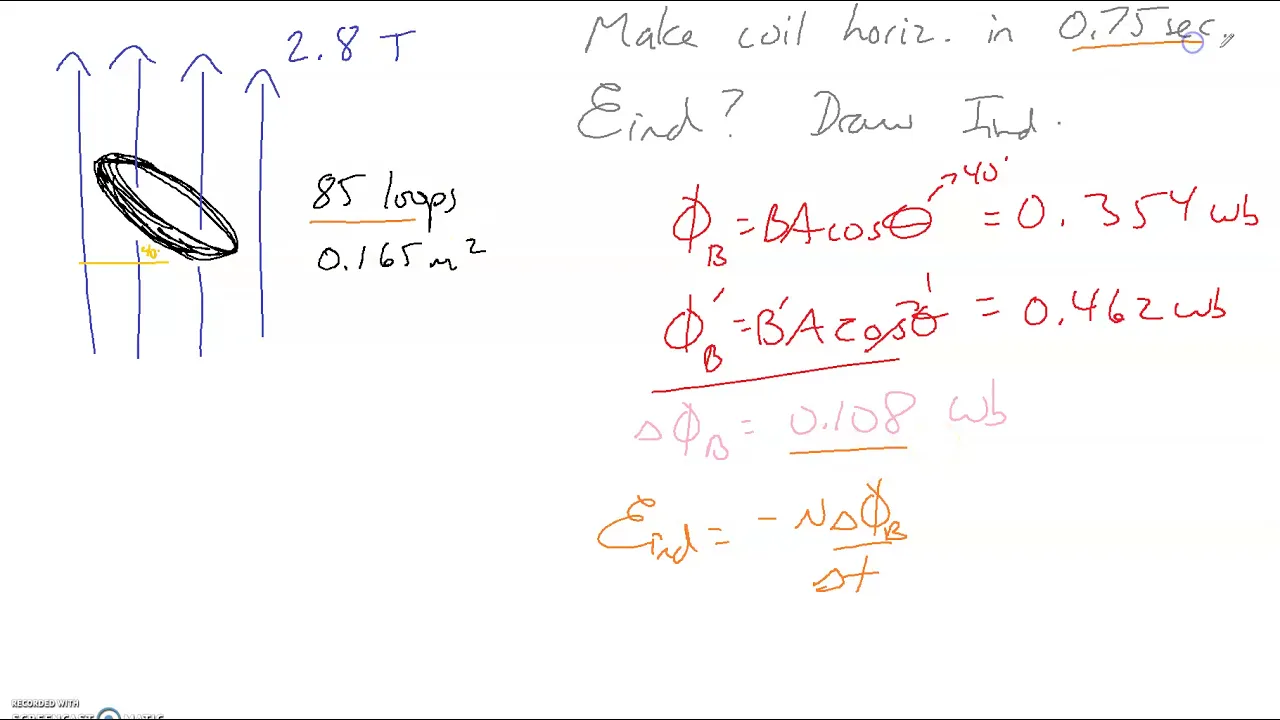 2.8 T
85 loops
0.165 m²
40°
Make coil horiz. in 0.75 sec.
Ɛind? Draw Iind.
ΦB = BAcosθ → 40° = 0.354 wb
ΦB' = B'A cosθ' = 0.462 wb
ΔΦB = 0.108 wb
Ɛind = - NΔΦB
Δt
RECORDED WITH